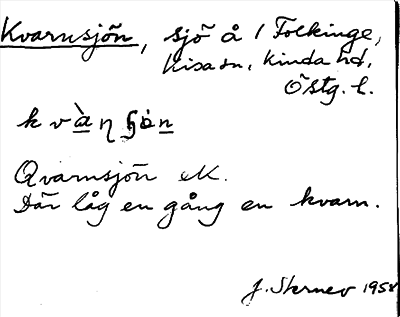 Kvarnsjön, sjö å / Folkinge,
Kisa sn, Kinda hd,
Östg. l.
Qvarnsjön eK.
Där låg en gång en kvarn.
J. Sterner 1958